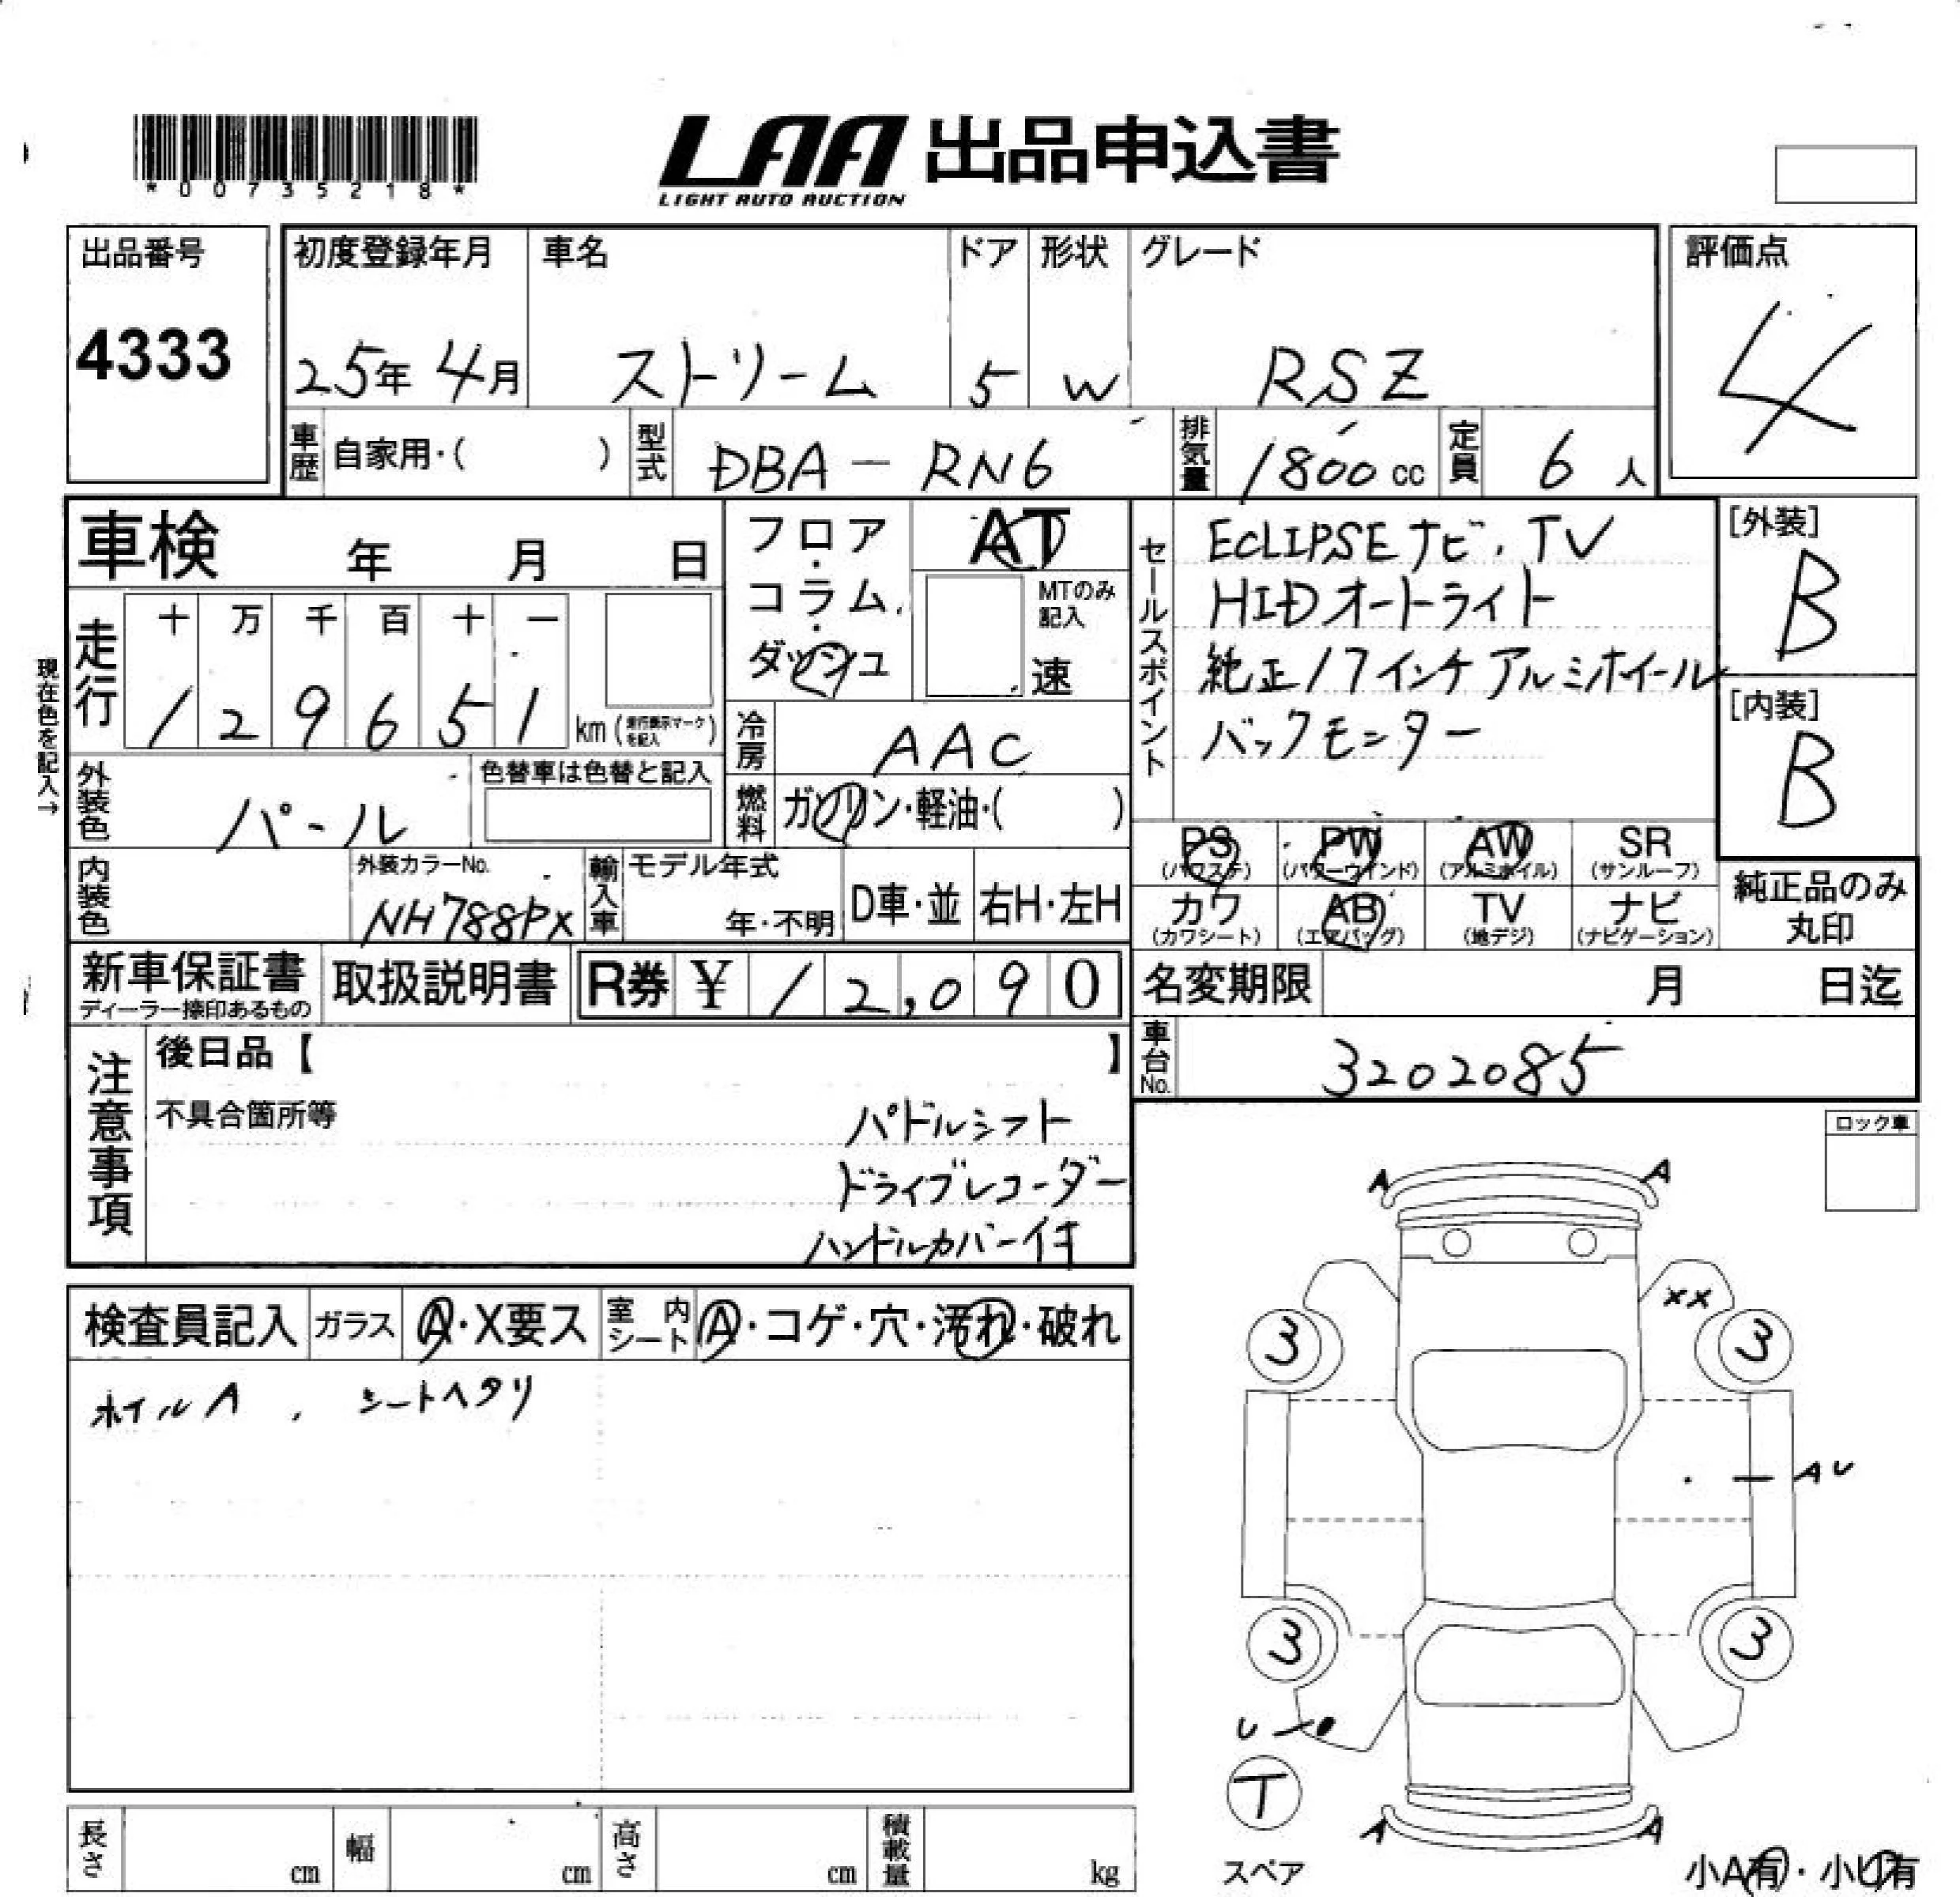 *00735218*
LAA 出品申込書
LIGHT AUTO AUCTION
出品番号
4333
初度登録年月
25年 4月
車名
ストリーム
ドア
5
形状
W
グレード
RSZ
評価点
4
車歴 自家用・( )
型式 DBA-RN6
排気量 1800 cc
定員 6 人
車検 年 月 日
フロア・コラム・ダッシュ
AT
MTのみ記入
速
セールスポイント
ECLIPSEナビ、TV
HIDオートライト
純正17インチアルミホイール
バックモニター
[外装]
B
[内装]
B
現在色を記入→
走行
十 万 千 百 十 一
1 2 9 6 5 1 km (走行表示マークを記入)
冷房 AAC
外装色 パール
色替車は色替と記入
燃料 ガソリン・軽油・( )
PS (パワステ)
PW (パワーウインド)
AW (アルミホイル)
SR (サンルーフ)
カワ (カワシート)
AB (エアバッグ)
TV (地デジ)
ナビ (ナビゲーション)
純正品のみ丸印
内装色
外装カラーNo.
NH788PX
輸入車
モデル年式
年・不明
D車・並
右H・左H
新車保証書
ディーラー捺印あるもの
取扱説明書
R券 ¥ 12,090
名変期限 月 日迄
車台No. 3202085
注意事項
後日品【 】
不具合箇所等
パドルシフト
ドライブレコーダー
ハンドルカバー付キ
ロック車
検査員記入
ガラス A・X要ス
室内シート A・コゲ・穴・汚れ・破れ
ホイルA 、 シートヘタリ
A A
XX
3 3
AU
3 3
U
T
スペア
A A
小A有・小U有
長さ cm
幅 cm
高さ cm
積載量 kg